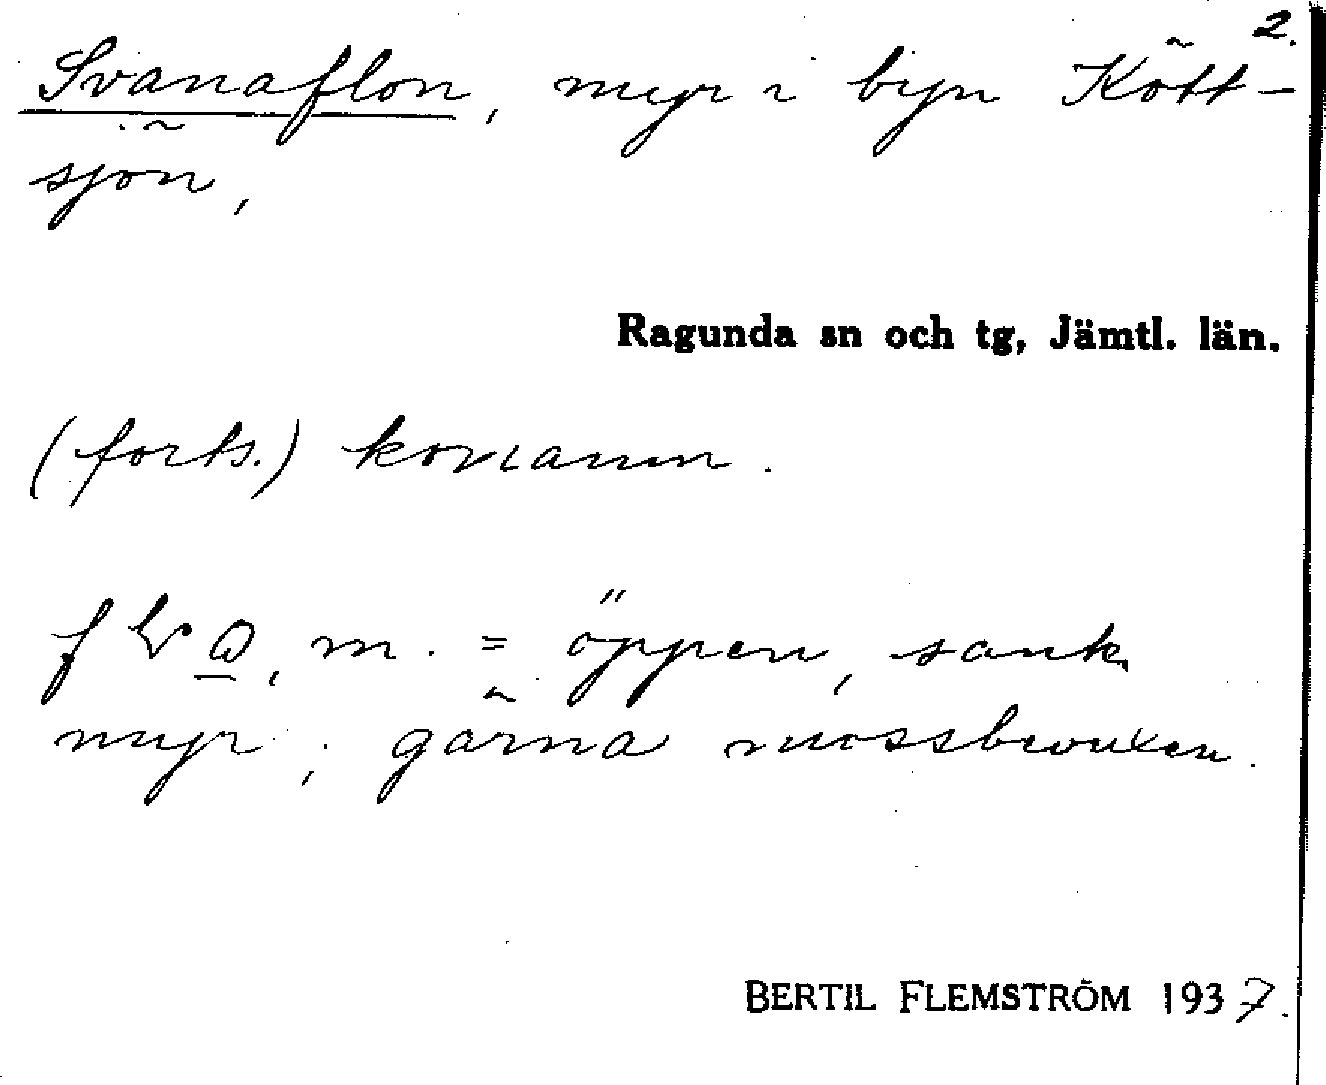 2.
Svanaflon, myr i byn Kött-
sjön,
Ragunda sn och tg, Jämtl. län.
(forts.)
m. = öppen, sank
myr, gärna mossbevuxen.
BERTIL FLEMSTRÖM 1937.